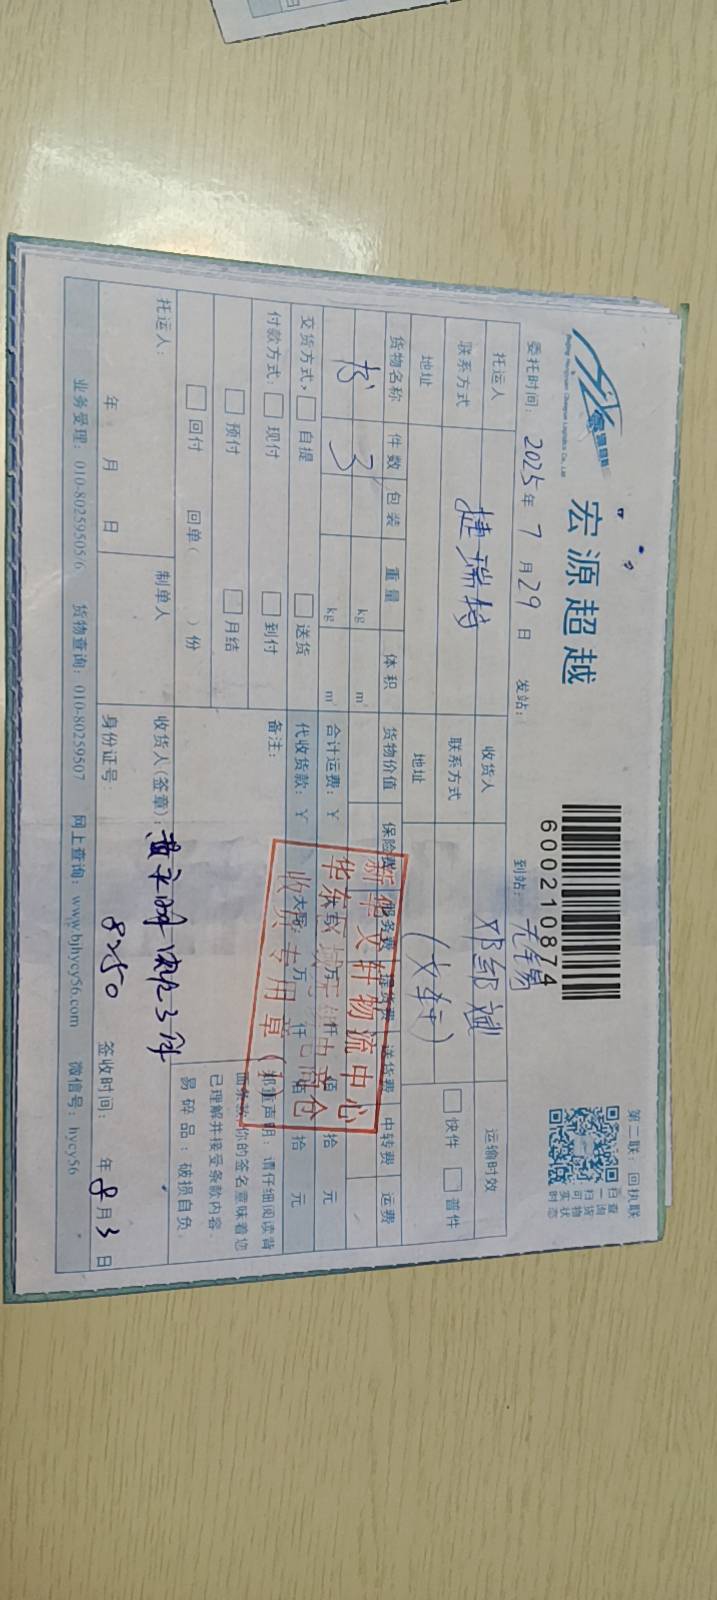 宏源超越
600210874
第二联：回执联
扫一扫 可实时
查询货物状态
委托时间：2025年7月29日 发站： 到站：无锡
托运人 捷瑞特 收货人 邓邵斌 运输时效
联系方式 联系方式 (文轩) 快件 普件
地址 地址
货物名称 件数 包装 重量 体积 货物价值 保险费 服务费 提货费 送货费 中转费 运费
书 3 kg m³
kg m³ 合计运费：￥ 万 仟 佰 拾 元
交货方式： 自提 送货 代收货款：￥ 大写： 万 仟 佰 拾 元
付款方式： 现付 到付 备注：
预付 月结
回付 回单( )份
郑重声明：请仔细阅读背
面条款，你的签名意味着您
已理解并接受条款内容。
易碎品：破损自负。
新华文轩物流中心
华东区域无锡中商仓
收货专用章(1)
托运人： 制单人 收货人(签章)： 收3件
年 月 日 身份证号： 8250 签收时间： 年8月3日
业务受理：010-80259505/6 货物查询：010-80259507 网上查询：www.bjhycy56.com 微信号：hycy56